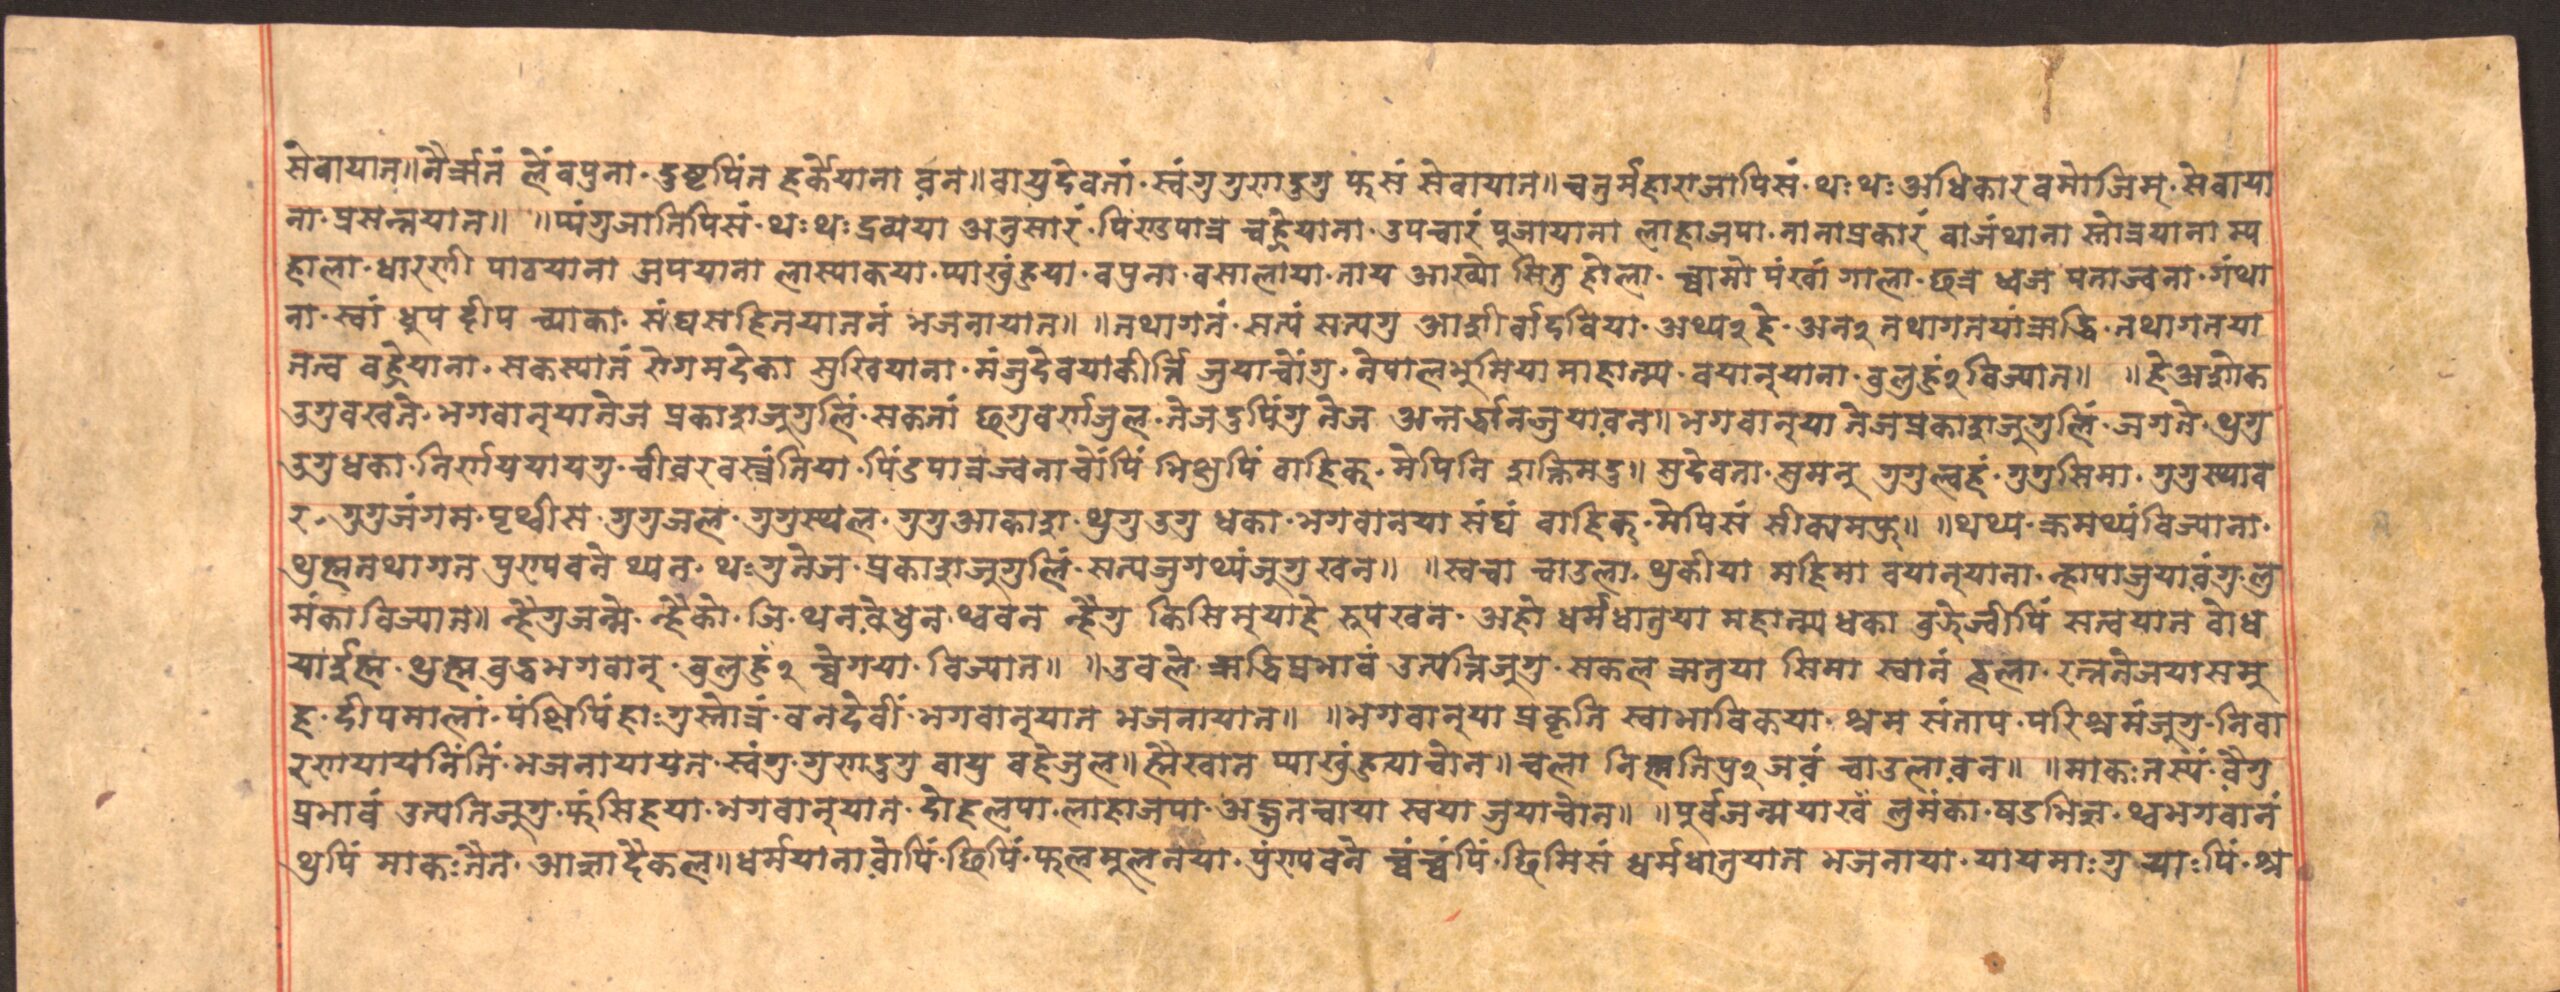 सेवायात॥नैर्ऋतं लेंवपुना·दुष्टपिंत हर्केयाना व़न॥वायुदेवतां·स्वंगुगुणदुगु फसं सेवायात॥चतुर्महाराजापिसं·थःथःअधिकारबमोजिम्·सेवाया
ना·प्रसन्नयात॥ ॥प्यंगुजातिपिसं·थःथःद्रव्यया अनुसारं·पिण्डपात्र न्वहेयाना·उपचारं पुजायाना लाहाजपा·नानाप्रकारं बाजंथाना स्तोत्रयाना म्य
हाला·धारणी पाठयाना जपयाना लास्याकया·प्याखुंहुया·वपुना·वसालाया·ताय आखेो सितु होला·च्वामो पंखां गाला·छत्र ध्वज पताज्वना·गंथा
ना·स्वां धुप दीप च्याका·संघसहितयातनं भजनायात॥ ॥तथागतं·सत्यं सत्यगु आशीर्वादबिया·अथ्य२हे·अन२तथागतयाऋद्धि·तथागतया
तत्व बहेयाना·सकस्यानं रोगमदेका सुखियाना·मंजुदेवयाकीर्त्ति जुयाचोंगु·नेपालभुमिया माहात्म्य·बयान्याना·बुलुहुं२बिज्यात॥ ॥हेअशोक
उगुबखते·भगवान्यातेज प्रकाशजुगुलिं·सकतां छगुवर्णजुल·तेजदुपिंगु तेज अन्तर्द्धानजुयाव़न॥भगवान्या तेजप्रकाशजुगुलिं·जगते·थुगु
उगुधका·निर्णययायगु·चीव़रवस्त्रंतिया·पिंडपात्रज्वनाचोंपिं भिक्षुपिं बाहिक·मेपिनि शक्तिमदु॥सुदेवता·सुमनु गुगुल्वहं·गुगुसिमा·गुगुस्थाव
र·गुगुजंगम·पृथ्वीस·गुगुजल·गुगुस्थल·गुगुआकाश·थुगुउगु धका·भगवानया संघं बाहिक·मेपिसं सीकामफु॥ ॥थथ्य·क्रमथ्यंबिज्याना·
थुह्मतथागत पुरुषवने थ्यन·थःगुतेज·प्रकाशजुगुलिं·सत्यजुगथ्यंजुगु खन॥ ॥स्वचा चाउला·थुकीया महिमा बयान्याना·न्हापाजुयाव़ंगु·लु
मंका बिज्यात॥न्हैगुजन्मे·न्हैको·जि·थनव़ेधुन·थ्ववन न्हैगु किसिम्याहे रुपखन·अहो धर्मधातुया महात्म्य धका बुझेज्वीपिं सत्वयात बोध
यार्दुह्म·थुह्म बुद्धभगवान्·बुलुहुं२न्वेगया·बिज्यात॥ ॥उबले·ऋद्धिप्रभावं उत्पत्तिजुगु·सकल ऋतुया सिमा स्वानं ह्वला·रत्नतेजयासमु
ह·दीपमालां·पंक्षिपिं हाःगुस्तोत्रं·वनदेवीं·भगवान्यात भजनायात॥ ॥भगवान्या प्रकृति स्वाभाविकया·श्रम संताप·परिश्रमंजुगु·निवा
रणयायनिंतिं·भजनायायत·स्वंगु·गुणदुगु वायु बहेजुल॥ह्मैखात प्याखुंहुयाचोन॥चला निह्मनिपु२जव़ं चाउलाव़न॥ ॥माकःतस्यं·वैगु
प्रभावं उत्पतिजुगु·फंसिहया·भगवान्यात·दोहलपा·लाहाजपा·अद्भुतचाया स्वया जुयाचोन॥ ॥पुर्वजन्मयाखं लुमंका·षडभिज्ञ·थ्वभगवानं
थुपिं माकःतैत·आज्ञादैकल॥धर्मयानाव़ोपिं·छिपिं·फलमुलनया·पुरुषवने च्वंच्वंपिं·छिमिसं धर्मधातुयात भजनाया·यायमाःगु याःपिं·श्र